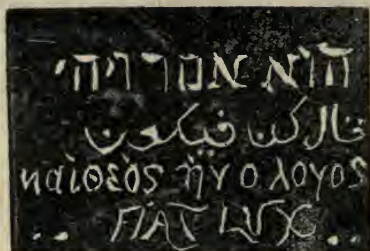 הוא אמר ויהי
قال كن فيكون
καὶ θεὸς ἦν ο λογος
.. FIAT LUX ..